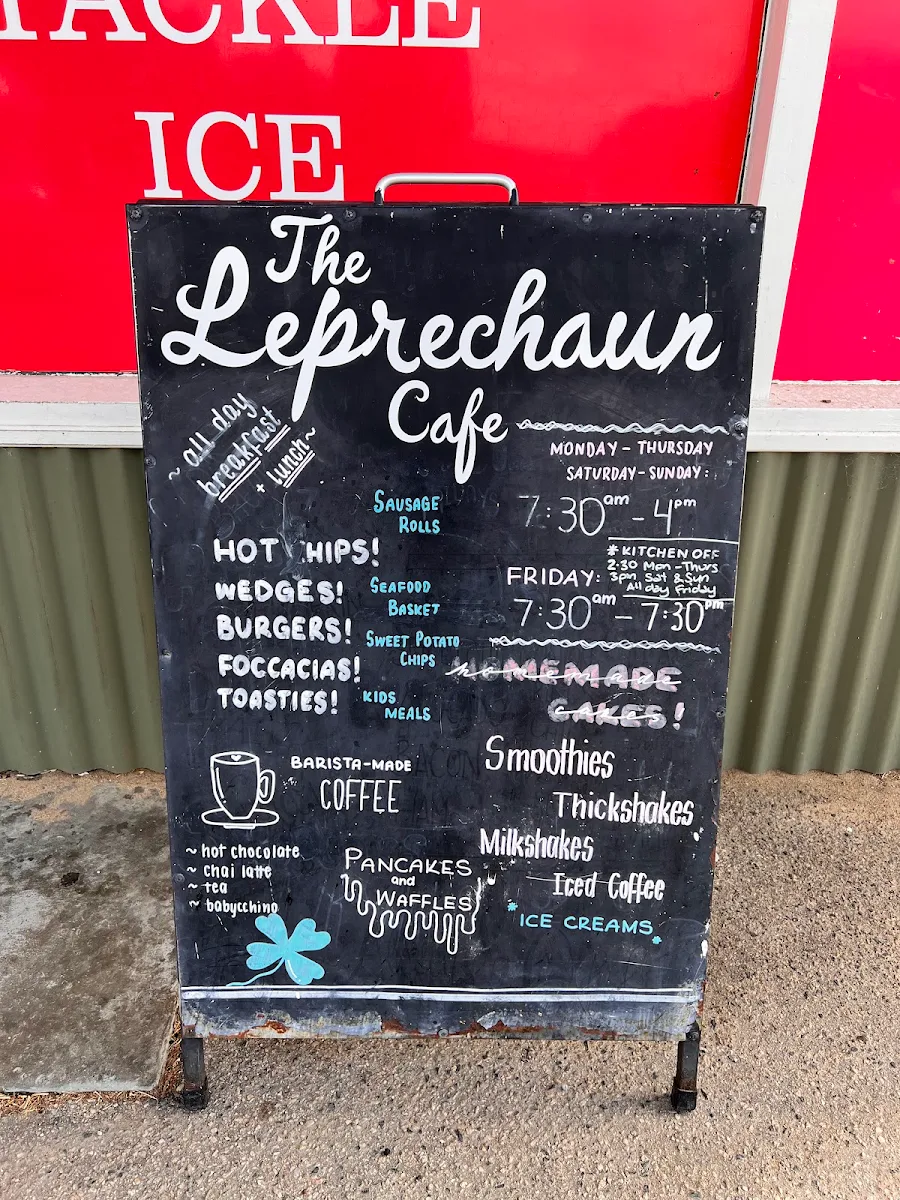 TACKLE
ICE
The
Leprechaun
Cafe
~ all day
breakfast
+ lunch ~
MONDAY - THURSDAY
SATURDAY - SUNDAY:
7:30am - 4pm
* KITCHEN OFF
2:30 Mon - Thurs
3pm Sat & Sun
All day Friday
FRIDAY:
7:30am - 7:30pm
SAUSAGE
ROLLS
HOT HIPS!
WEDGES!
SEAFOOD
BASKET
BURGERS!
SWEET POTATO
CHIPS
FOCCACIAS!
TOASTIES!
KIDS
MEALS
HOMEMADE
CAKES!
BARISTA-MADE
COFFEE
~ hot chocolate
~ chai latte
~ tea
~ babycchino
PANCAKES
and
WAFFLES
Smoothies
Thickshakes
Milkshakes
Iced Coffee
* ICE CREAMS *